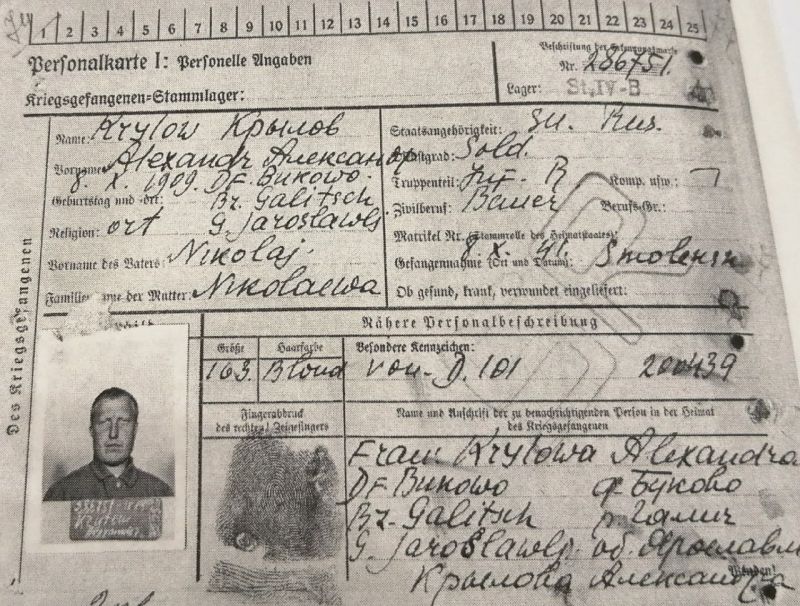 1 2 3 4 5 6 7 8 9 10 11 12 13 14 15 16 17 18 19 20 21 22 23 24 25
Personalkarte I: Personelle Angaben
Beschriftung der Erkennungsmarke
Nr. 286751.
Kriegsgefangenen=Stammlager:
Lager: St.IV-B
Des Kriegsgefangenen
Name: Krylow Крылов
Vorname: Alexandr Александр
8. X. 1909. Df. Bukowo.
Geburtstag und -ort: Bz. Galitsch
Religion: ort G. Jaroslawlj.
Vorname des Vaters: Nikolaj.
Familienname der Mutter: Nikolaewa
Staatsangehörigkeit: Su. Rus.
Dienstgrad: Sold.
Truppenteil: Inf. R Komp. usw.:
Zivilberuf: Bauer Berufs-Gr.:
Matrikel Nr. (Stammrolle des Heimatstaates):
Gefangennahme (Ort und Datum): 8. X. 41. Smolensk
Ob gesund, krank, verwundet eingeliefert:
Nähere Personalbeschreibung
Größe Haarfarbe Besondere Kennzeichen:
163. Blond von D. 101 200439
Fingerabdruck
des rechten! Zeigefingers
Name und Anschrift der zu benachrichtigenden Person in der Heimat
des Kriegsgefangenen
Frau: Krylowa Alexandra
Df Bukowo д Буково
Bz. Galitsch р Галич
G. Jaroslawlj. об. Ярославль
Крылова Александра
Wenden!